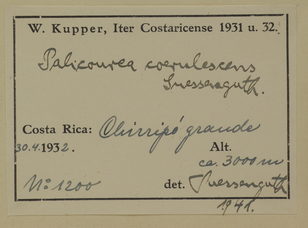 W. Kupper, Iter Costaricense 1931 u. 32.
Palicourea coerulescens
Suessenguth.
Costa Rica: Chirripó grande
30.4.1932. Alt.
ca. 3000 m
No 1200 det. Suessenguth
1941.